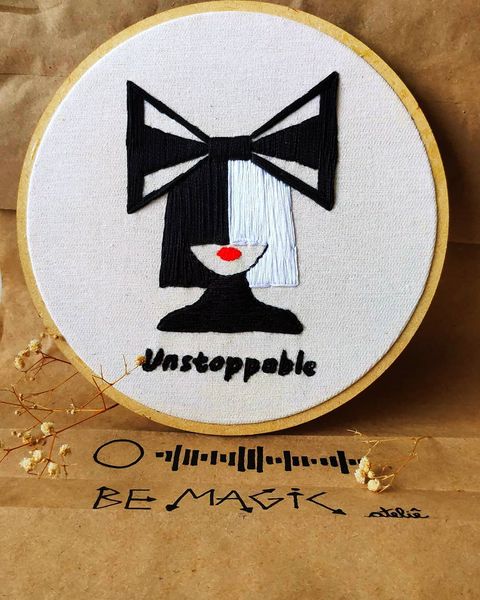 Unstoppable
BE MAGIC
ateliê